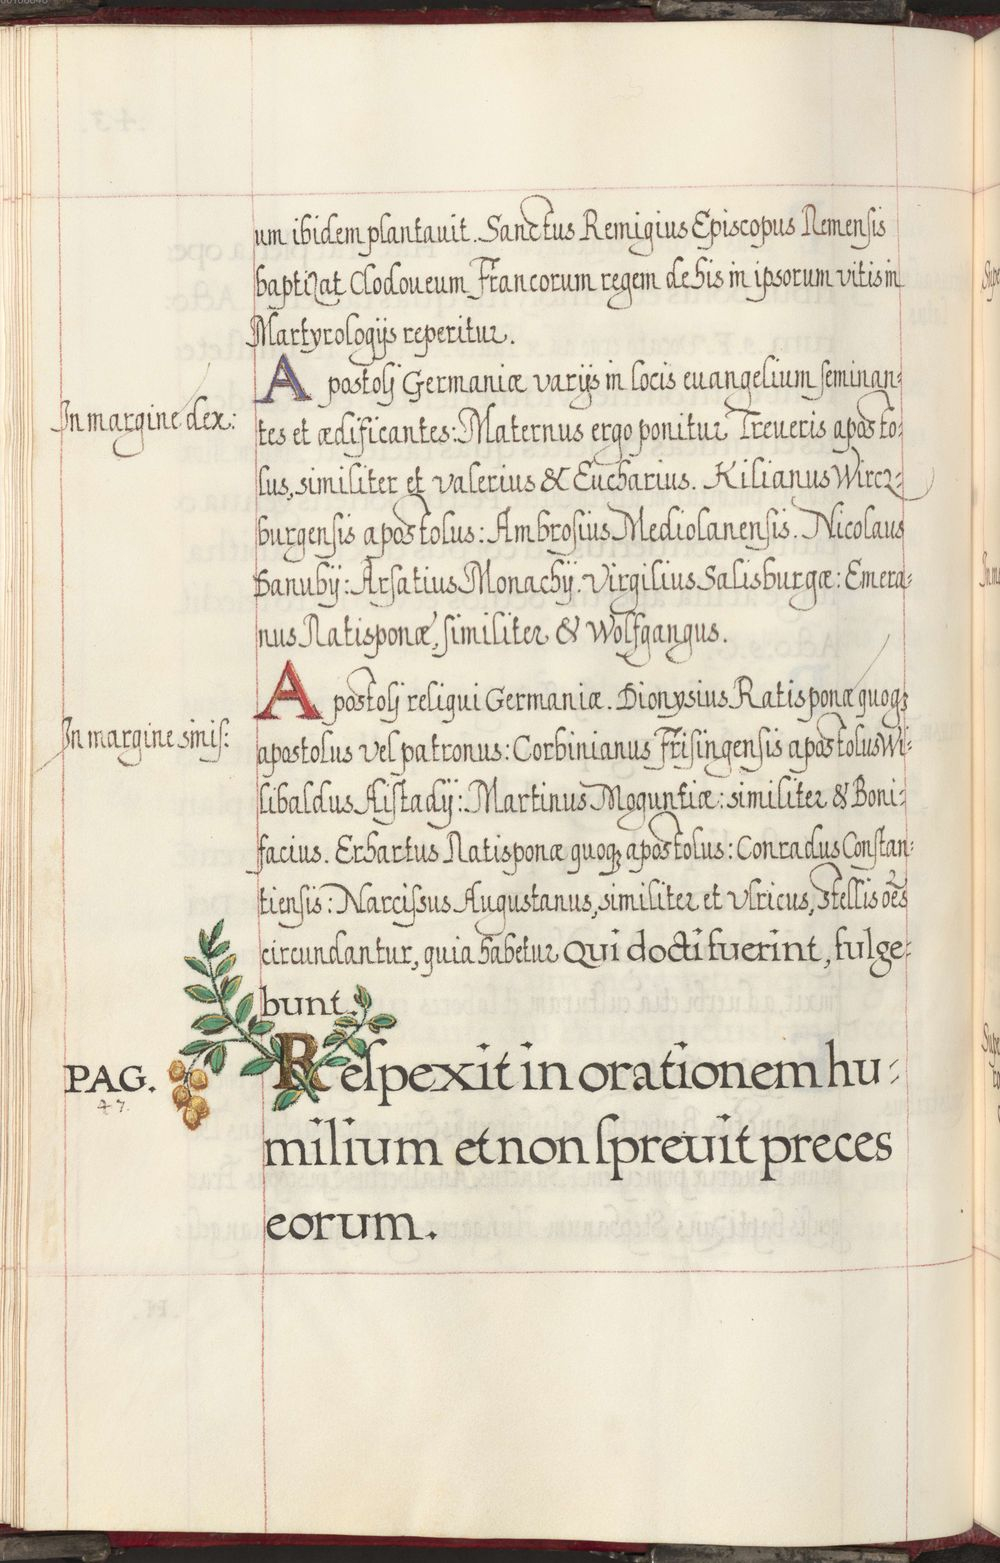 um ibidem plantauit. Sanctus Remigius Episcopus Remensis
baptizat Clodoueum Francorum regem de his in ipsorum vitis in
Martyrologijs reperitur.
In margine dex:
Apostolj Germaniæ varijs in locis euangelium seminan:
tes et ædificantes: Maternus ergo ponitur Treueris aposto:
lus, similiter et valerius & Eucharius. Kilianus Wircz:
burgensis apostolus: Ambrosius Mediolanensis. Nicolaus
Danubij: Arsatius Monachij. Virgilius Salisburgæ: Emera:
nus Ratisponæ, similiter & Wolfgangus.
In margine sinis:
Apostolj religui Germaniæ. Dionysius Ratisponæ quoqȝ
apostolus vel patronus: Corbinianus Frisingensis apostolus Wi:
libaldus Aistadij: Martinus Moguntiæ: similiter & Boni:
facius. Erhartus Ratisponæ quoqȝ apostolus: Conradus Constan:
tiensis: Narcissus Augustanus, similiter et Vlricus, stellis oēs
circundantur, quia habetur Qui docti fuerint, fulge:
bunt.
PAG.
47.
Respexit in orationem hu:
milium et non spreuit preces
eorum.